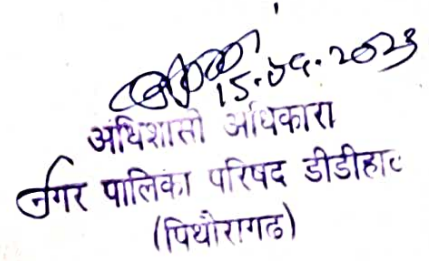 15.09.2023
अधिशासी अधिकारी
नगर पालिका परिषद डीडीहाट
(पिथौरागढ)